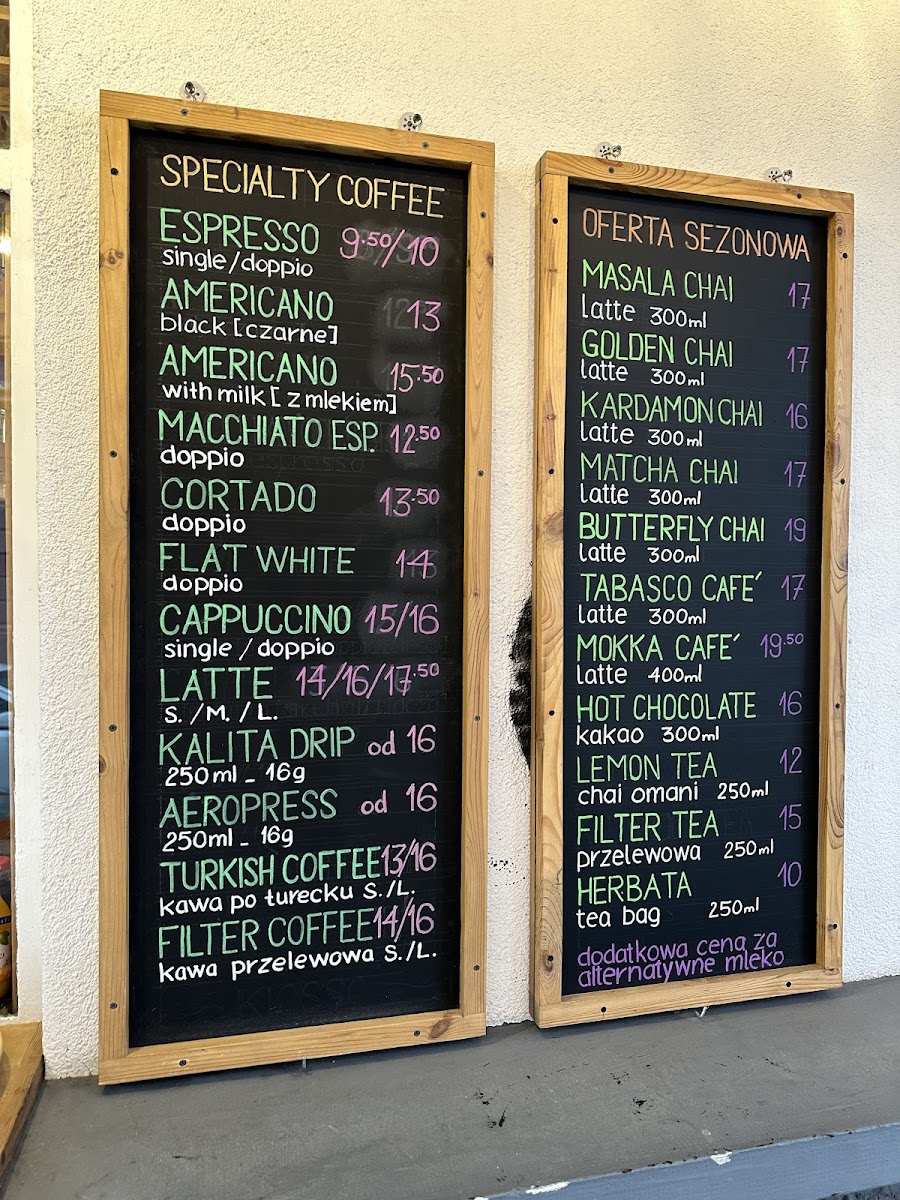 SPECIALTY COFFEE
ESPRESSO 9.50/10
single/doppio
AMERICANO 13
black [czarne]
AMERICANO 15.50
with milk [z mlekiem]
MACCHIATO ESP. 12.50
doppio
CORTADO 13.50
doppio
FLAT WHITE 14
doppio
CAPPUCCINO 15/16
single / doppio
LATTE 14/16/17.50
S. /M. / L.
KALITA DRIP od 16
250ml - 16g
AEROPRESS od 16
250ml - 16g
TURKISH COFFEE 13/16
kawa po turecku S./L.
FILTER COFFEE 14/16
kawa przelewowa S./L.
OFERTA SEZONOWA
MASALA CHAI 17
latte 300ml
GOLDEN CHAI 17
latte 300ml
KARDAMON CHAI 16
latte 300ml
MATCHA CHAI 17
latte 300ml
BUTTERFLY CHAI 19
latte 300ml
TABASCO CAFE´ 17
latte 300ml
MOKKA CAFE´ 19.50
latte 400ml
HOT CHOCOLATE 16
kakao 300ml
LEMON TEA 12
chai omani 250ml
FILTER TEA 15
przelewowa 250ml
HERBATA 10
tea bag 250ml
dodatkowa cena za
alternatywne mleko